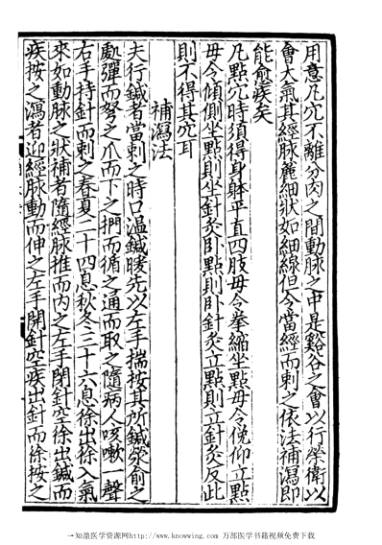 用意凡穴不離分肉之間動脉之中是谿谷之會以行榮衛以
會大氣其經脉麄細狀如細線但令當經而刺之依法補瀉即
能愈疾矣
凡點穴時須得身躰平直四肢毋令拳縮坐點毋令俛仰立點
毋令傾側坐點則坐針灸卧點則卧針灸立點則立針灸反此
則不得其穴耳
補瀉法
夫行鍼者當刺之時口温鍼暖先以左手揣按其所鍼滎俞之
處彈而努之爪而下之捫而循之通而取之隨病人咳嗽一聲
右手持針而刺之春夏二十四息秋冬三十六息徐出徐入氣
來如動脉之狀補者隨經脉推而内之左手閉針空徐出鍼而
疾按之瀉者迎經脉動而伸之左手開針空疾出針而徐按之
→知墨医学资源网http://www.knowing.com 万部医学书籍视频免费下载